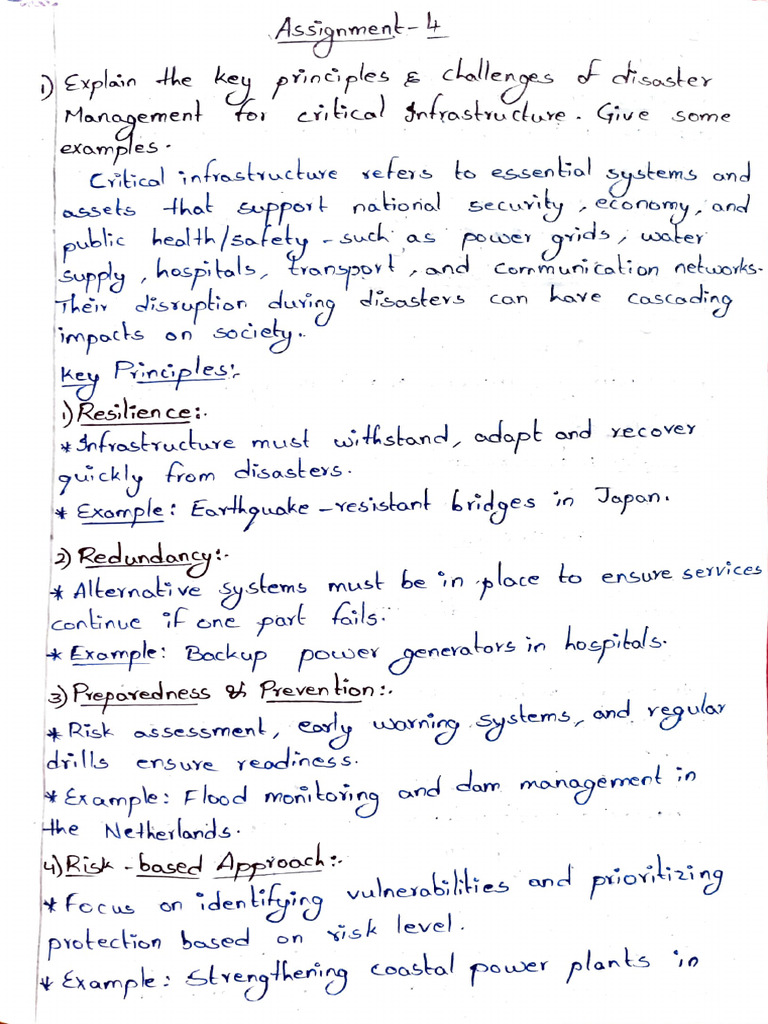 Assignment - 4
1) Explain the key principles & challenges of disaster
Management for critical Infrastructure. Give some
examples.
Critical infrastructure refers to essential systems and
assets that support national security, economy, and
public health/safety - such as power grids, water
supply, hospitals, transport, and communication networks.
Their disruption during disasters can have cascading
impacts on society.
Key Principles:-
1) Resilience:-
* Infrastructure must withstand, adapt and recover
quickly from disasters.
* Example: Earthquake - resistant bridges in Japan.
2) Redundancy:-
* Alternative systems must be in place to ensure services
continue if one part fails.
* Example: Backup power generators in hospitals.
3) Preparedness & Prevention:-
* Risk assessment, early warning systems, and regular
drills ensure readiness.
* Example: Flood monitoring and dam management in
the Netherlands.
4) Risk - based Approach:-
* Focus on identifying vulnerabilities and prioritizing
protection based on risk level.
* Example: Strengthening coastal power plants in